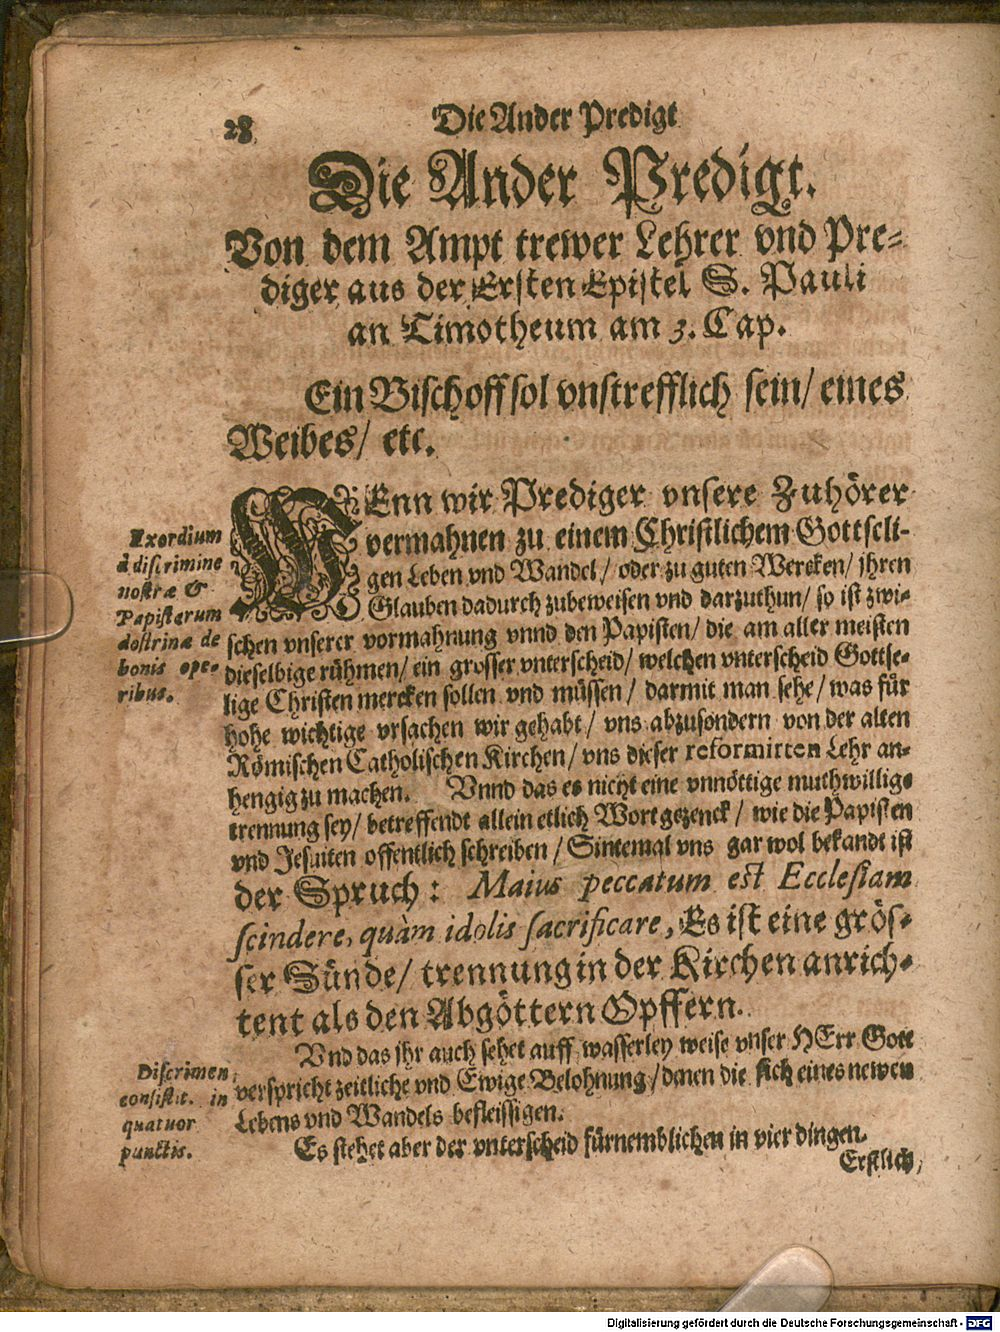 28
Die Ander Predigt
Die Ander Predigt.
Von dem Ampt trewer Lehrer vnd Pre-
diger aus der Ersten Epistel S. Pauli
an Timotheum am 3. Cap.
Ein Bischoff sol vnstrefflich sein/ eines
Weibes/ etc.
Exordium
à discrimine
nostræ &
Papistarum
doctrinæ de
bonis ope-
ribus.
WEnn wir Prediger vnsere Zuhörer
vermahnen zu einem Christlichem Gottseli-
gen Leben vnd Wandel/ oder zu guten Wercken/ jhren
Glauben dadurch zubeweisen vnd darzuthun/ so ist zwi-
schen vnserer vormahnung vnnd den Papisten/ die am aller meisten
dieselbige rühmen/ ein grosser vnterscheid/ welchen vnterscheid Gottse-
lige Christen mercken sollen vnd müssen/ darmit man sehe/ was für
hohe wichtige vrsachen wir gehabt/ vns abzusondern von der alten
Römischen Catholischen Kirchen/ vns dieser reformirten Lehr an-
hengig zu machen. Vnnd das es nicht eine vnnöttige muthwillige
trennung sey/ betreffendt allein etlich Wortgezenck/ wie die Papisten
vnd Jesuiten offentlich schreiben/ Sintemal vns gar wol bekandt ist
der Spruch: Maius peccatum est Ecclesiam
scindere, quàm idolis sacrificare, Es ist eine grös-
ser Sünde/ trennung in der Kirchen anrich-
tent als den Abgöttern Opffern.
Vnd das jhr auch sehet auff wasserley weise vnser HErr Gott
verspricht zeitliche vnd Ewige Belohnung/ denen die sich eines newen
Lebens vnd Wandels befleissigen.
Discrimen
consistit in
quatuor
punctis.
Es stehet aber der vnterscheid fürnemblichen in vier dingen.
Erstlich,
Digitalisierung gefördert durch die Deutsche Forschungsgemeinschaft - DFG